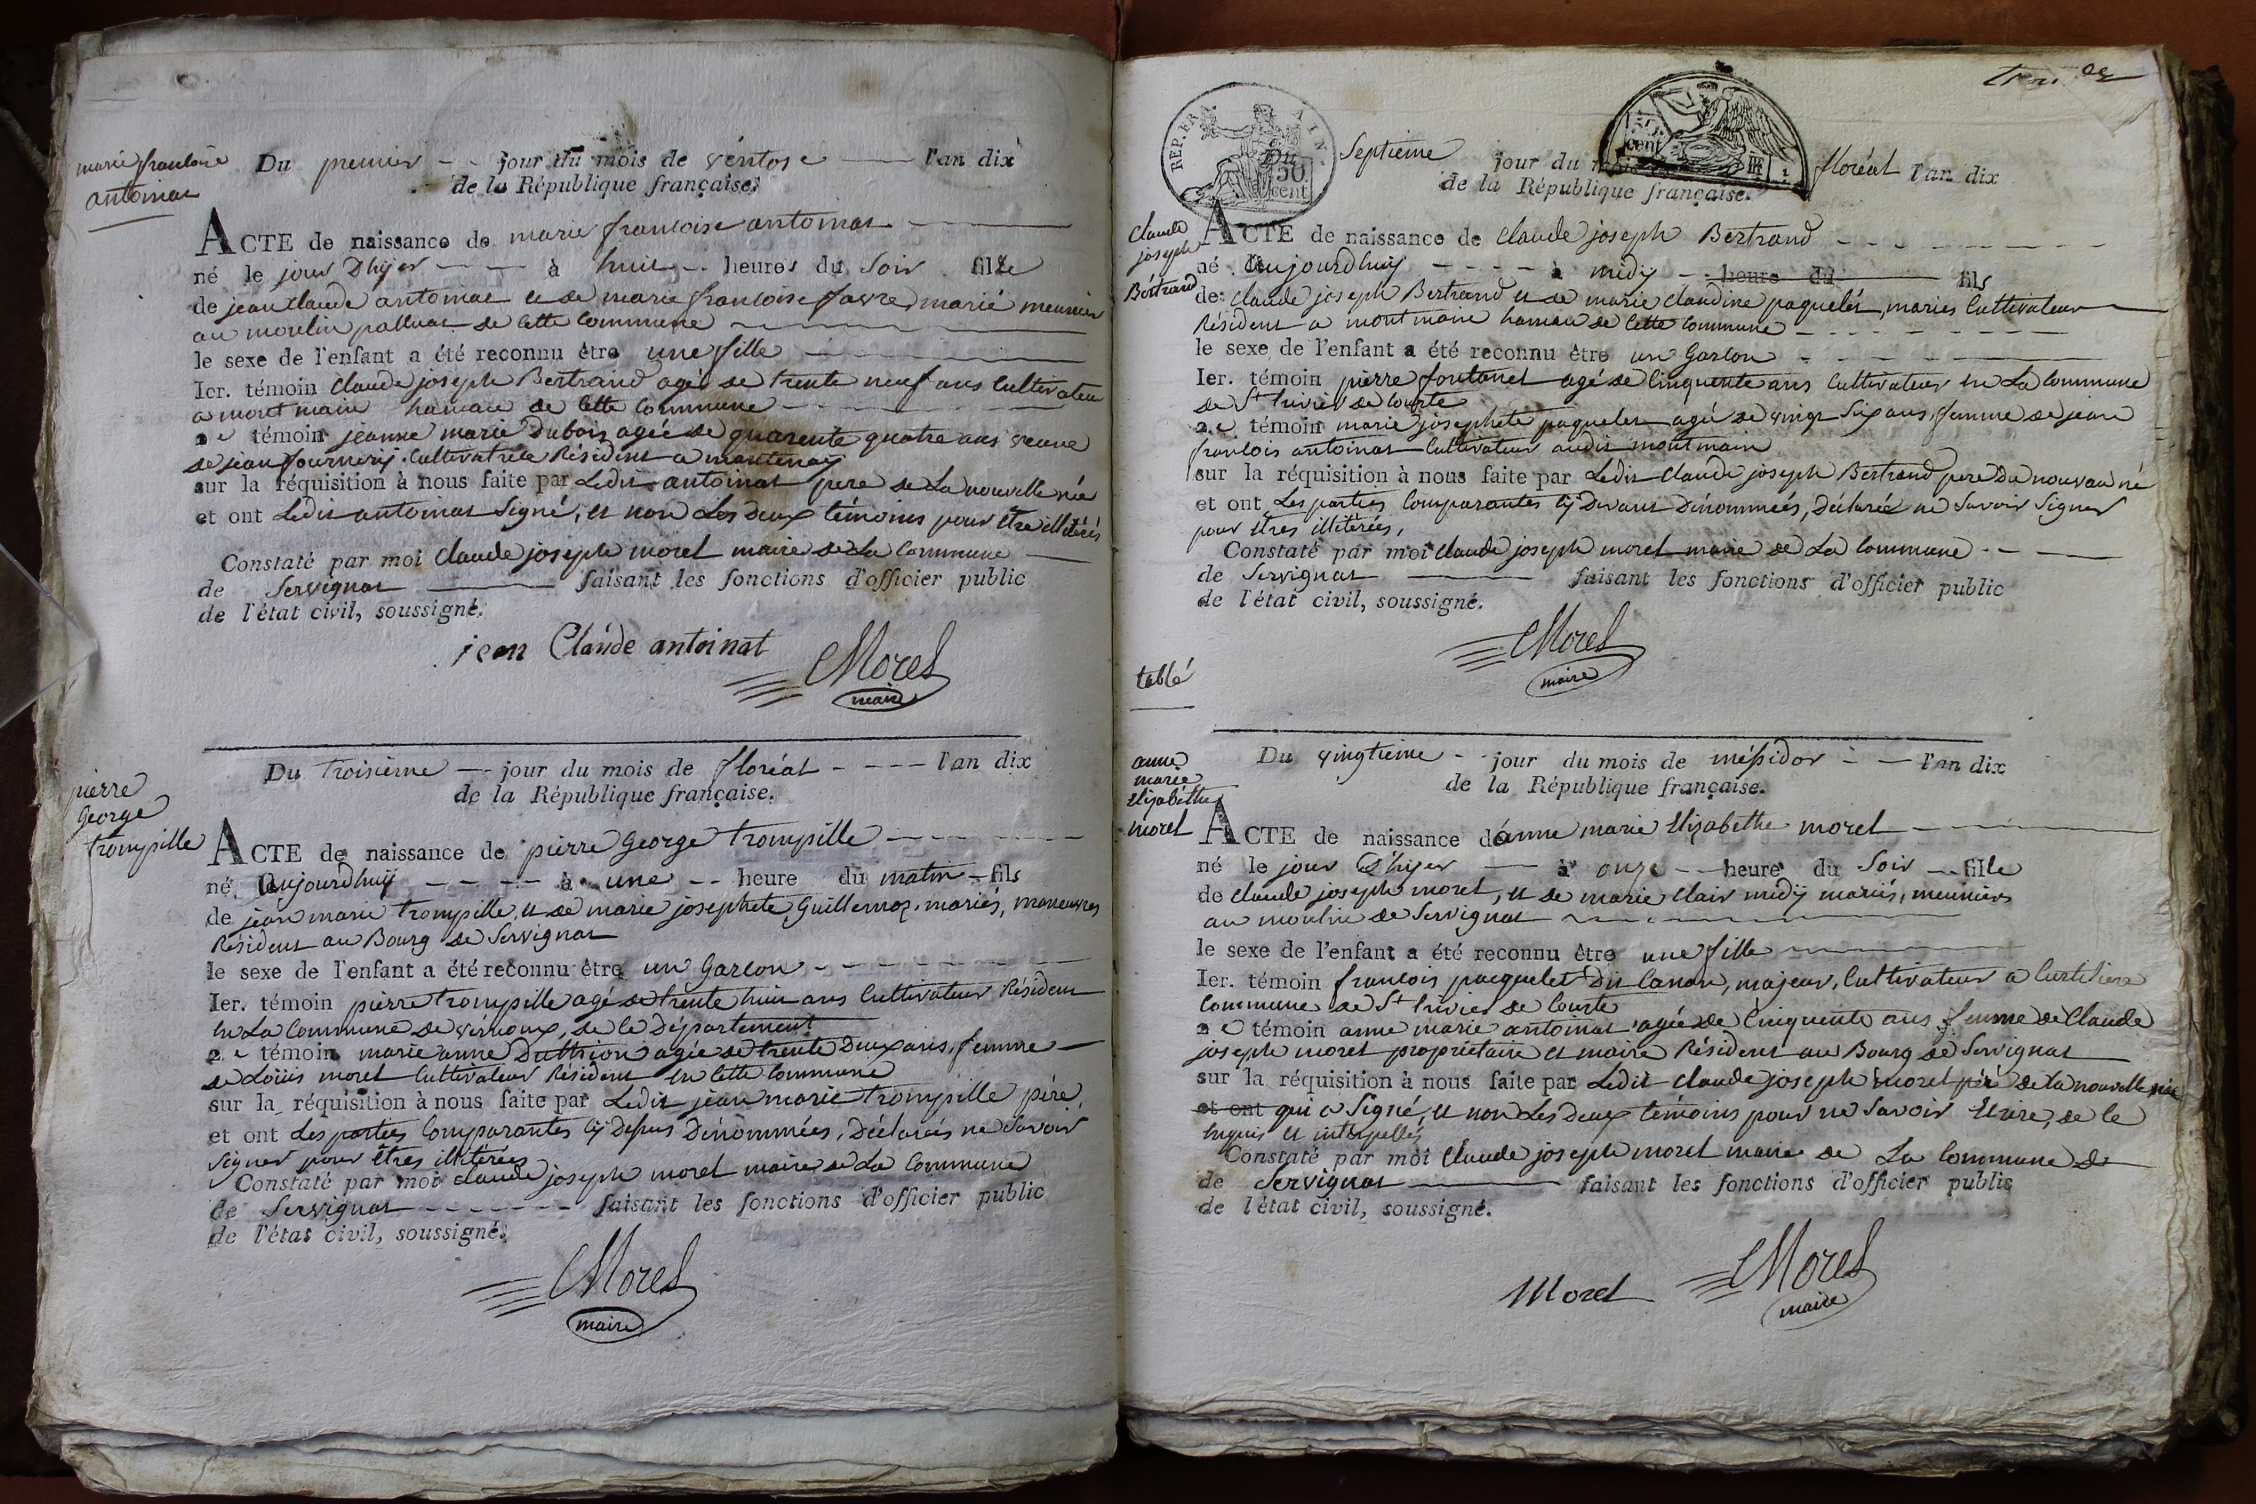 marie francoise
antoinat
Du premier jour du mois de véntose l'an dix
de la République française.
ACTE de naissance de marie francoise antoinat
né le jour D'hyer à huit heures du soir fille
de jean claude antoinat et de marie francoise favre, marié meunier
au moulin palluat de cette commune
le sexe de l'enfant a été reconnu être une fille
Ier. témoin claude joseph Bertrand agé de trente neuf ans cultivateur
a mont main hamau de cette commune
2e témoin jeanne marie Dubois agée de quarente quatre ans veuve
de jean fournerij cultivatrice Résident a mantenaij
sur la réquisition à nous faite par Ledit antoinat pere de la nouvelle née
et ont Ledit antoinat signé, et non Les deux témoins pour être illitérés
Constaté par moi claude joseph morel maire de la commune
de Servignat faisant les fonctions d'officier public
de l'état civil, soussigné.
jean Claude antoinat
Morel
maire
pierre
George
trompille
Du troisième jour du mois de floréal l'an dix
de la République française.
ACTE de naissance de pierre George trompille
né aujourdhuij à une heure du matin fils
de jean marie trompille, et de marie josephete Guillermoz mariés, maneuvres
Résident au Bourg de Servignat
le sexe de l'enfant a été reconnu être un Garcon
Ier. témoin pierre trompille agé de trente huit ans cultivateur Résident
en La commune de vernoux, de ce Département
2e témoin marie anne Duthion agée de trente Deux ans, femme
de Loüis morel cultivateur Résident en cette commune
sur la réquisition à nous faite par Ledit jean marie trompille pére,
et ont Les parties comparantes cy Depus Dénommées, Déclarés ne savoir
signer pour êtres illitérées
Constaté par moi claude joseph morel maire de La commune
de Servignat faisant les fonctions d'officier public
de l'état civil, soussigné.
Morel
maire
REP. FRA
50
cent
cent
Du Septieme jour du mois floréal l'an dix
de la République française.
claude
joseph
Bertrand
ACTE de naissance de claude joseph Bertrand
né aujourdhuij à midij heure du fils
de claude joseph Bertrand et de marie claudine paquelet, mariés cultivateur
Résident a mont main hamau de cette commune
le sexe de l'enfant a été reconnu être un Garcon
Ier. témoin pierre fontanel agé de cinquente ans cultivateur en La commune
de St trivier de courte
2e témoin marie josephete paquelet agée de vingt six ans, femme de jean
francois antoinat cultivateur audit montmain
sur la réquisition à nous faite par Ledit claude joseph Bertrand pere Du nouvau né
et ont Les parties comparantes cy Devant Dénommés, Déclarés ne savoir signer
pour êtres illitérés,
Constaté par moi claude joseph morel maire de La commune
de Servignat faisant les fonctions d'officier public
de l'état civil, soussigné.
Morel
maire
tablé
anne
marie
Elizabéthe
morel
Du vingtieme jour du mois de méssidor l'an dix
de la République française.
ACTE de naissance de anne marie Elizabethe morel
né le jour D'hyer à onze heure du soir fille
de claude joseph morel, et de marie clair midij mariés, meuniers
au moulin de Servignat
le sexe de l'enfant a été reconnu être une fille
Ier. témoin francois pacquelet Dit canon, majeur, cultivateur a Curtiliere
commune de St trivier de courte
2e témoin anne marie antoinat agée de cinquente ans femme de claude
joseph morel propriétaire et maire Résident au Bourg de Servignat
sur la réquisition à nous faite par Ledit claude joseph morel pére de la nouvelle née
et ont qui a signé, et non Les deux témoins pour ne savoir Ecrire, de ce
enquis et interpellés
Constaté par moi claude joseph morel maire de La commune de
de Servignat faisant les fonctions d'officier public
de l'état civil, soussigné.
Morel
Morel
maire